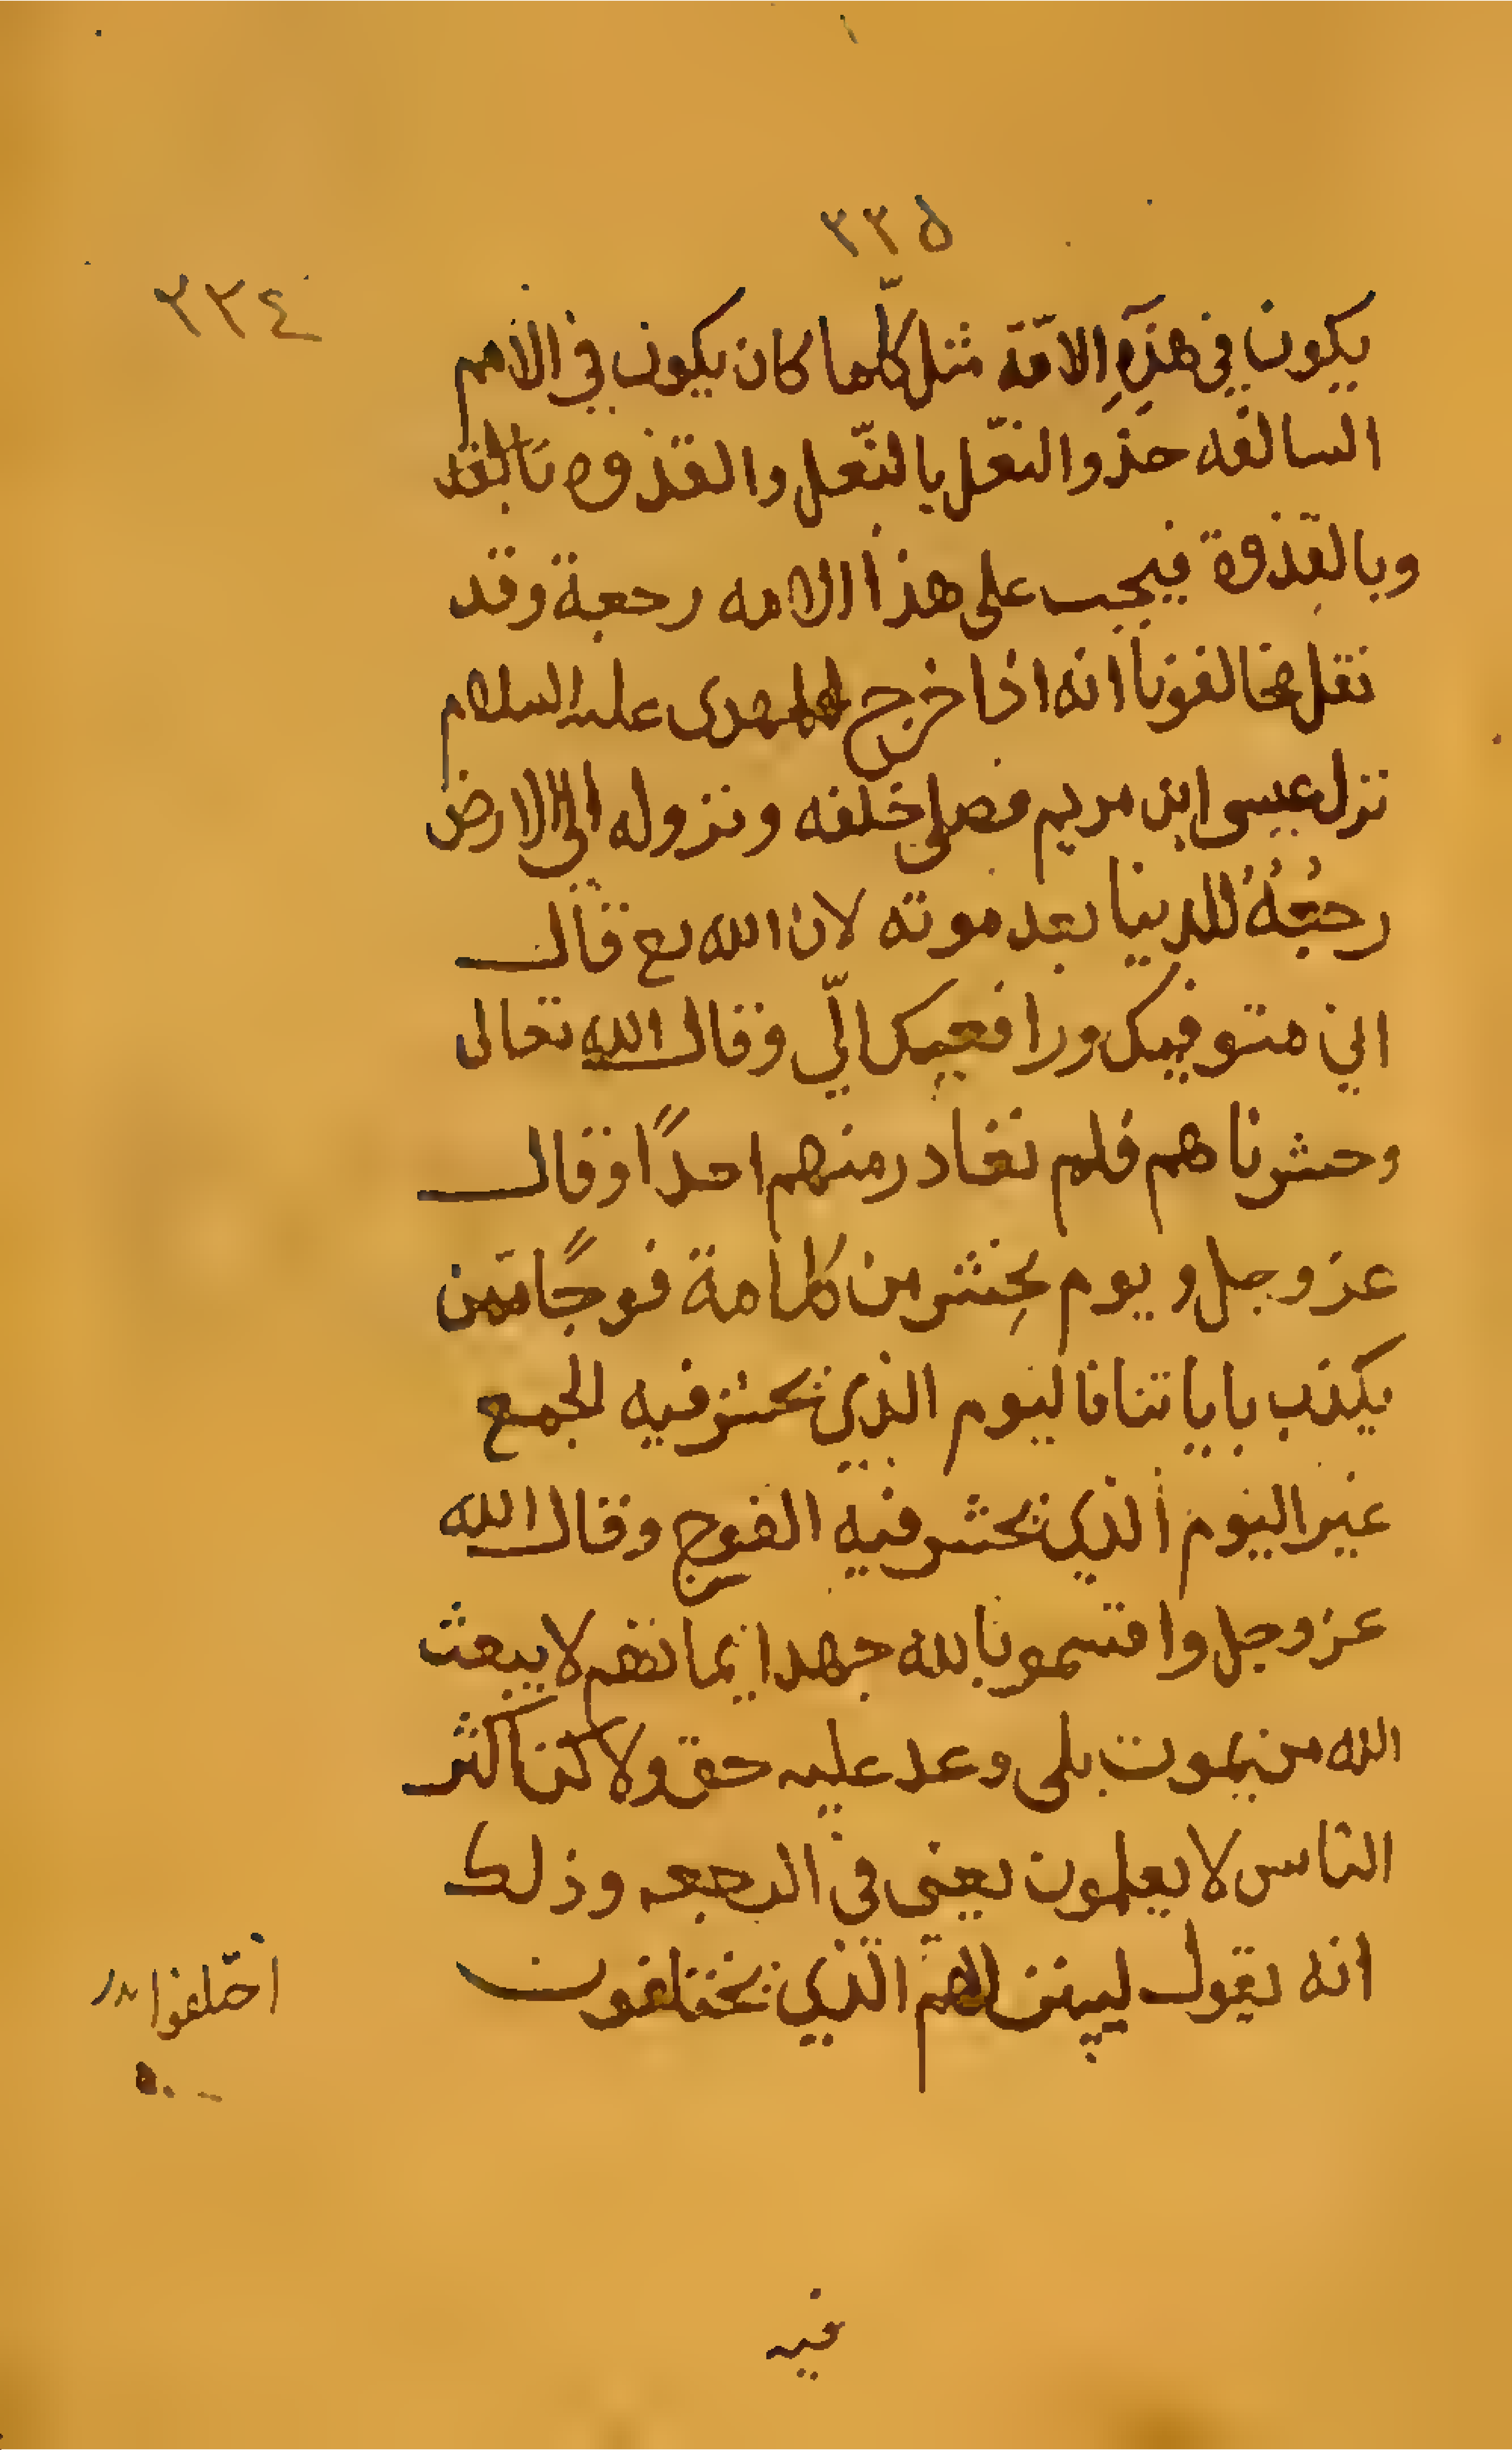 ٣٣٥
٣٣٤
يكون في هذِهِ الامّة مثل كلّما كان يكون في الامم
السالفه حذو النعّل بالنّعل والقذوه بالقد
وبالقذوة فيجب على هذا الامه رجعة وقد
نقل مخالفونا انه اذا خرج المهدى عليه السلام
نزل عيسى ابن مريم فصلى خلفه ونزوله الى الارض
رجعُةُ للدينا بعد موته لان الله تع قال
اني متوفيك ورافعيك اليّ وقال الله تعالى
وحشرناهم فلم نغادر منهم احدًا وقال
عز وجل ويوم يحشر من كل امة فوجًا ممن
يكذب باياتنا فاليوم الذي يحشر فيه الجمع
غير اليوم الذي يحشر فيه الفوج وقال الله
عز وجل واقسمو بالله جهد ايمانهم لا يبعث
الله من يموت بلى وعد عليه حق ولاكن اكثر
الناس لا يعلمون يعنى في الرجعه وذلك
انه يقول ليبنن لهم الذي يختلفون
اختلفوا
فيه